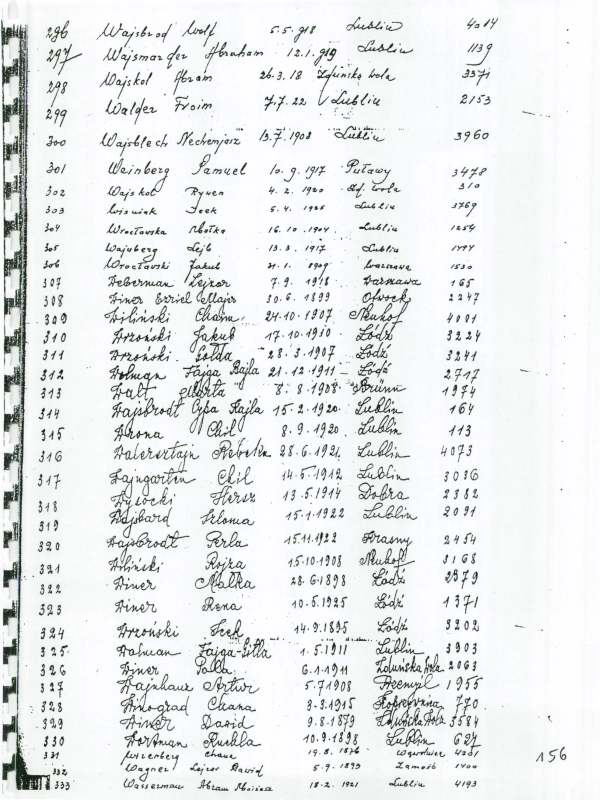 296 Wajsbrod Wolf 5.5.918 Lublin 4014
297 Wajsmarder Abraham 12.1.919 Lublin 1139
298 Wajskol Abram 26.3.18 Zduńska Wola 3371
299 Walder Froim 7.7.22 Lublin 2153
300 Wajsblech Nechemjasz 13.7.1908 Lublin 3960
301 Wainberg Samuel 10.9.1917 Puławy 3478
302 Wajskol Rywen 4.2.1920 Zd. Wola 310
303 Wiśniak Icek 5.4.1925 Lublin 3769
304 Wrocławska 16.10.1904 Lublin 1254
305 Wajnberg Lejb 13.3.1917 Lublin 1494
306 Wrocławski Jakub 21.1.1909 Warszawa 1530
307 Weberman Lejzor 7.9.1918 Warszawa 165
308 Winer Ezriel Majer 30.6.1899 Otwock 2247
309 Wiliński Chaim 24.10.1907 4001
310 Wrzoński Jakub 17.10.1910 Łódź 3224
311 Wrzoński Golda 28.3.1907 Łódź 3241
312 Wolman Fajga Bajla 21.12.1911 Łódź 2717
313 Walt Marta 8.8.1908 Brünn 1974
314 Wajsbrodt Cypa Hajla 15.2.1920 Lublin 164
315 Wrona Chil 8.9.1920 Lublin 113
316 Walersztajn Rebeka 28.6.1921 Lublin 4073
317 Wajngarten Chil 14.5.1912 Lublin 3036
318 Wysocki Hersz 13.5.1914 Dobra 2382
319 Wajsbard Szloma 15.1.1922 Lublin 2091
320 Wajsbrodt Perla 15.11.1922 2454
321 Wiliński Rojza 15.10.1908 3168
322 Winer Malka 28.6.1898 Łódź 2379
323 Winer Rena 10.5.1925 Łódź 1371
324 Wrzoński Icek 14.9.1895 Łódź 3202
325 Wolman Fajga-Gitla 1.5.1911 Lublin 3903
326 Winer Polka 6.1.1911 Zduńska Wola 2063
327 Wajnhaus Artur 5.7.1908 Przemyśl 1955
328 Winograd Chana 8-3.1915 770
329 Winer Dawid 9.8.1879 Zduńska Wola 3584
330 Wortman Ruchla 10.9.1898 Lublin 627
331 Wirzenberg Chana 19.8.1876 4201
332 Wagner Lejzor Dawid 5.9.1893 Zamość 1400
333 Wasserman Abram Mojżesz 18.2.1921 Lublin 4193
156